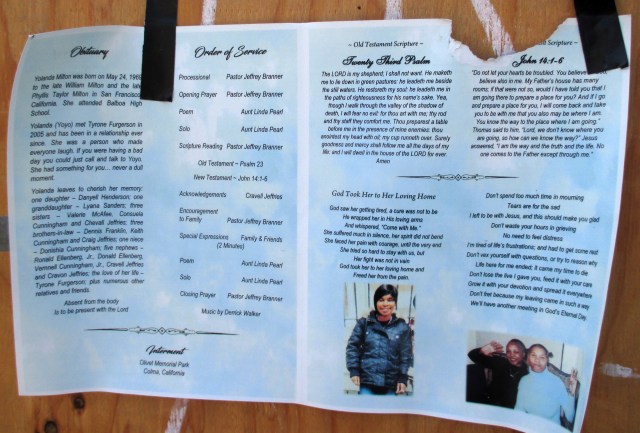 Obituary
Yolanda Milton was born on May 24, 1969
to the late William Milton and the late
Phyllis Taylor Milton in San Francisco
California. She attended Balboa High
School.
Yolanda (Yoyo) met Tyrone Furgerson in
2005 and has been in a relationship ever
since. She was a person who made
everyone laugh. If you were having a bad
day you could just call and talk to Yoyo.
She had something for you... never a dull
moment.
Yolanda leaves to cherish her memory:
one daughter – Danyell Henderson; one
granddaughter – Lyana Sanders; three
sisters – Valerie McAfee, Consuela
Cunningham and Cheval Jeffries; three
brothers-in-law – Dennis Franklin, Keith
Cunningham and Craig Jeffries; one niece
– Donishia Cunningham; five nephews –
Ronald Ellenberg, Jr., Donald Ellenberg,
Vernnell Cunningham, Jr., Cravell Jeffries
and Cravon Jeffries; the love of her life –
Tyrone Furgerson; plus numerous other
relatives and friends.
Absent from the body
is to be present with the Lord
Order of Service
Processional Pastor Jeffrey Branner
Opening Prayer Pastor Jeffrey Branner
Poem Aunt Linda Pearl
Solo Aunt Linda Pearl
Scripture Reading Pastor Jeffrey Branner
Old Testament – Psalm 23
New Testament – John 14:1-6
Acknowledgements Cravell Jeffries
Encouragement
to Family Pastor Jeffrey Branner
Special Expressions Family & Friends
(2 Minutes)
Poem Aunt Linda Pearl
Solo Aunt Linda Pearl
Closing Prayer Pastor Jeffrey Branner
Music by Derrick Walker
Interment
Olivet Memorial Park
Colma, California
~ Old Testament Scripture ~
Twenty Third Psalm
The LORD is my shepherd; I shall not want. He maketh
me to lie down in green pastures: he leadeth me beside
the still waters. He restoreth my soul: he leadeth me in
the paths of righteousness for his name's sake. Yea,
though I walk through the valley of the shadow of
death, I will fear no evil: for thou art with me; thy rod
and thy staff they comfort me. Thou preparest a table
before me in the presence of mine enemies: thou
anointest my head with oil; my cup runneth over. Surely
goodness and mercy shall follow me all the days of my
life: and I will dwell in the house of the LORD for ever.
Amen
Testament Scripture ~
John 14:1-6
"Do not let your hearts be troubled. You believe
believe also in me. My Father's house has many
rooms; if that were not so, would I have told you that I
am going there to prepare a place for you? And if I go
and prepare a place for you, I will come back and take
you to be with me that you also may be where I am.
You know the way to the place where I am going."
Thomas said to him, "Lord, we don't know where you
are going, so how can we know the way?" Jesus
answered, "I am the way and the truth and the life. No
one comes to the Father except through me."
God Took Her to Her Loving Home
God saw her getting tired, a cure was not to be
He wrapped her in His loving arms
And whispered, "Come with Me."
She suffered much in silence, her spirit did not bend
She faced her pain with courage, until the very end
She tried so hard to stay with us, but
Her fight was not in vain
God took her to her loving home and
Freed her from the pain.
Don't spend too much time in mourning
Tears are for the sad
I left to be with Jesus, and this should make you glad
Don't waste your hours in grieving
No need to feel distress
I'm tired of life's frustrations; and had to get some rest
Don't vex yourself with questions, or try to reason why
Life here for me ended; it came my time to die
Don't lose the live I gave you, feed it with your care
Grow it with your devotion and spread it everywhere
Don't fret because my leaving came in such a way
We'll have another meeting in God's Eternal Day.